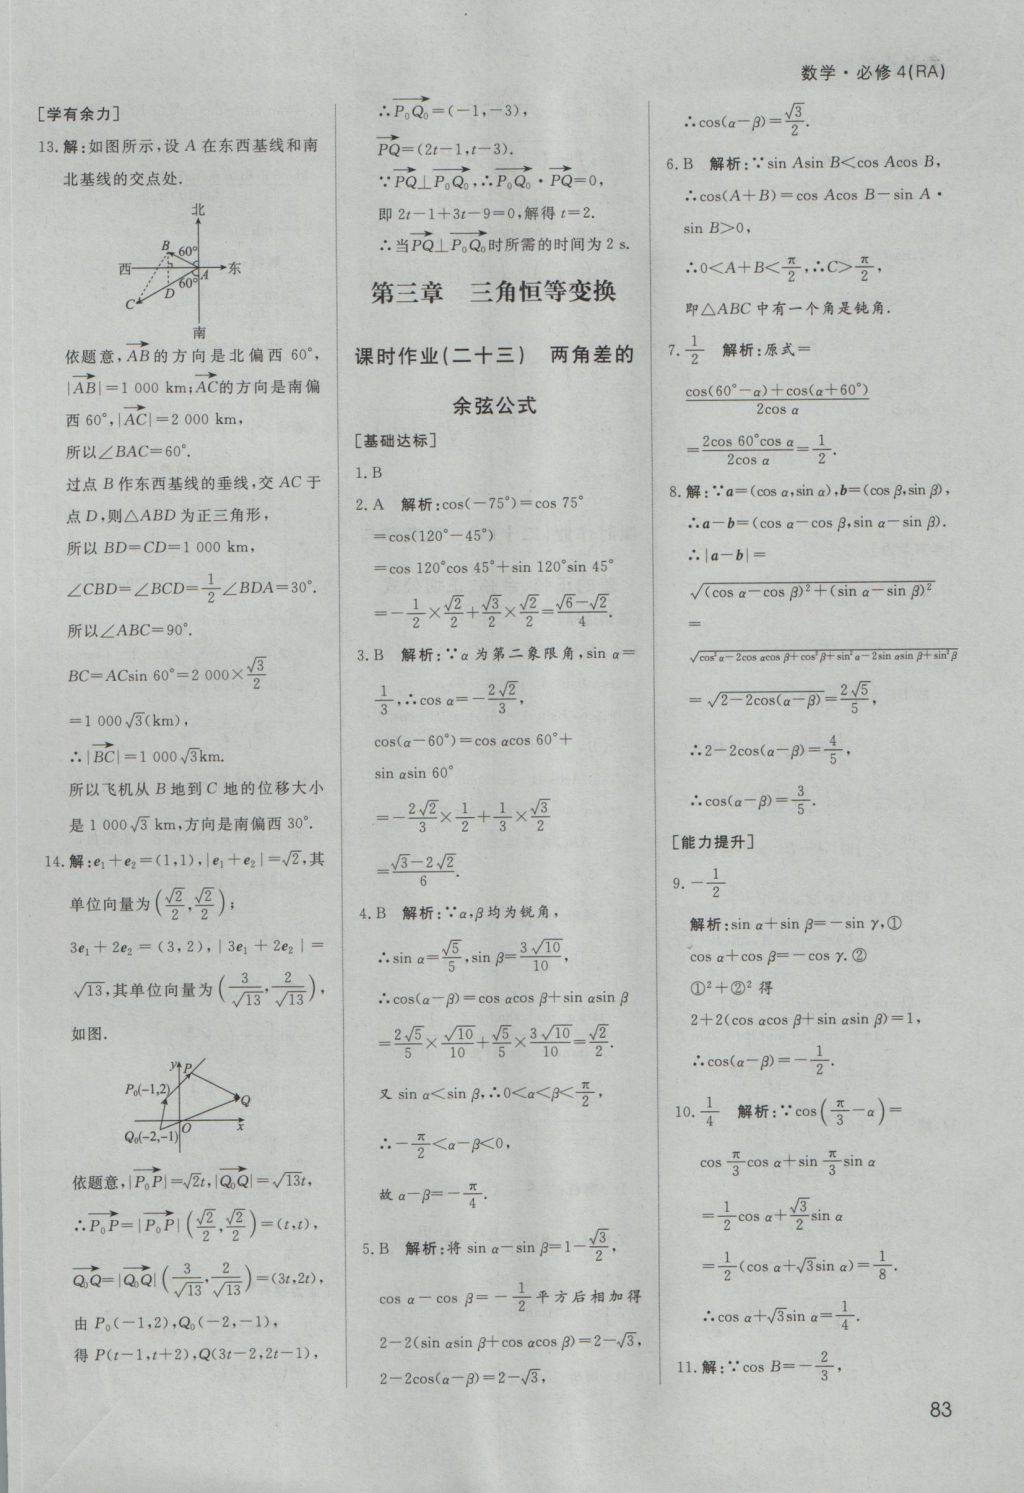 数学·必修4(RA)
[学有余力]
13. 解:如图所示,设 A 在东西基线和南
北基线的交点处.
北
B
60°
西
东
A
60°
D
C
南
依题意,$\overrightarrow{AB}$的方向是北偏西 60°,
|$\overrightarrow{AB}$|=1 000 km;$\overrightarrow{AC}$的方向是南偏
西 60°,|$\overrightarrow{AC}$|=2 000 km,
所以∠BAC=60°.
过点 B 作东西基线的垂线,交 AC 于
点 D,则△ABD 为正三角形,
所以 BD=CD=1 000 km,
∠CBD=∠BCD=$\frac{1}{2}$∠BDA=30°.
所以∠ABC=90°.
BC=ACsin 60°=2 000×$\frac{\sqrt{3}}{2}$
=1 000$\sqrt{3}$(km),
∴|$\overrightarrow{BC}$|=1 000$\sqrt{3}$km.
所以飞机从 B 地到 C 地的位移大小
是 1 000$\sqrt{3}$ km,方向是南偏西 30°.
14. 解:e₁+e₂=(1,1),|e₁+e₂|=$\sqrt{2}$,其
单位向量为($\frac{\sqrt{2}}{2}$,$\frac{\sqrt{2}}{2}$);
3e₁+2e₂=(3,2),|3e₁+2e₂|=
$\sqrt{13}$,其单位向量为($\frac{3}{\sqrt{13}}$,$\frac{2}{\sqrt{13}}$),
如图.
y
P
P₀(-1,2)
Q
O
x
Q₀(-2,-1)
依题意,|$\overrightarrow{P_0P}$|=$\sqrt{2}$t,|$\overrightarrow{Q_0Q}$|=$\sqrt{13}$t,
∴$\overrightarrow{P_0P}$=|$\overrightarrow{P_0P}$|($\frac{\sqrt{2}}{2}$,$\frac{\sqrt{2}}{2}$)=(t,t),
$\overrightarrow{Q_0Q}$=|$\overrightarrow{Q_0Q}$|($\frac{3}{\sqrt{13}}$,$\frac{2}{\sqrt{13}}$)=(3t,2t),
由 P₀(-1,2),Q₀(-2,-1),
得 P(t-1,t+2),Q(3t-2,2t-1),
∴$\overrightarrow{P_0Q_0}$=(-1,-3),
$\overrightarrow{PQ}$=(2t-1,t-3).
∵$\overrightarrow{PQ}$⊥$\overrightarrow{P_0Q_0}$,∴$\overrightarrow{P_0Q_0}$·$\overrightarrow{PQ}$=0,
即 2t-1+3t-9=0,解得 t=2.
∴当$\overrightarrow{PQ}$⊥$\overrightarrow{P_0Q_0}$时所需的时间为 2 s.
第三章 三角恒等变换
课时作业(二十三) 两角差的
余弦公式
[基础达标]
1. B
2. A 解析:cos(-75°)=cos 75°
=cos(120°-45°)
=cos 120°cos 45°+sin 120°sin 45°
=-$\frac{1}{2}$×$\frac{\sqrt{2}}{2}$+$\frac{\sqrt{3}}{2}$×$\frac{\sqrt{2}}{2}$=$\frac{\sqrt{6}-\sqrt{2}}{4}$.
3. B 解析:∵α 为第二象限角,sin α=
$\frac{1}{3}$,∴cos α=-$\frac{2\sqrt{2}}{3}$,
cos(α-60°)=cos αcos 60°+
sin αsin 60°
=-$\frac{2\sqrt{2}}{3}$×$\frac{1}{2}$+$\frac{1}{3}$×$\frac{\sqrt{3}}{2}$
=$\frac{\sqrt{3}-2\sqrt{2}}{6}$.
4. B 解析:∵α,β均为锐角,
∴sin α=$\frac{\sqrt{5}}{5}$,sin β=$\frac{3\sqrt{10}}{10}$,
∴cos(α-β)=cos αcos β+sin αsin β
=$\frac{2\sqrt{5}}{5}$×$\frac{\sqrt{10}}{10}$+$\frac{\sqrt{5}}{5}$×$\frac{3\sqrt{10}}{10}$=$\frac{\sqrt{2}}{2}$.
又 sin α<sin β,∴0<α<β<$\frac{π}{2}$,
∴-$\frac{π}{2}$<α-β<0,
故 α-β=-$\frac{π}{4}$.
5. B 解析:将 sin α-sin β=1-$\frac{\sqrt{3}}{2}$,
cos α-cos β=-$\frac{1}{2}$平方后相加得
2-2(sin αsin β+cos αcos β)=2-$\sqrt{3}$,
2-2cos(α-β)=2-$\sqrt{3}$,
∴cos(α-β)=$\frac{\sqrt{3}}{2}$.
6. B 解析:∵sin Asin B<cos Acos B,
∴cos(A+B)=cos Acos B-sin A·
sin B>0,
∴0<A+B<$\frac{π}{2}$,∴C>$\frac{π}{2}$,
即△ABC 中有一个角是钝角.
7. $\frac{1}{2}$ 解析:原式=
$\frac{cos(60°-α)+cos(α+60°)}{2cos α}$
=$\frac{2cos 60°cos α}{2cos α}$=$\frac{1}{2}$.
8. 解:∵a=(cos α,sin α),b=(cos β,sin β),
∴a-b=(cos α-cos β,sin α-sin β).
∴|a-b|=
$\sqrt{(cos α-cos β)^2+(sin α-sin β)^2}$
=
$\sqrt{cos^2α-2cos αcos β+cos^2β+sin^2α-2sin αsin β+sin^2β}$
=$\sqrt{2-2cos(α-β)}$=$\frac{2\sqrt{5}}{5}$,
∴2-2cos(α-β)=$\frac{4}{5}$,
∴cos(α-β)=$\frac{3}{5}$.
[能力提升]
9. -$\frac{1}{2}$
解析:sin α+sin β=-sin γ,①
cos α+cos β=-cos γ.②
①²+②² 得
2+2(cos αcos β+sin αsin β)=1,
∴cos(α-β)=-$\frac{1}{2}$.
10. $\frac{1}{4}$ 解析:∵cos($\frac{π}{3}$-α)=
cos $\frac{π}{3}$cos α+sin $\frac{π}{3}$sin α
=$\frac{1}{2}$cos α+$\frac{\sqrt{3}}{2}$sin α
=$\frac{1}{2}$(cos α+$\sqrt{3}$sin α)=$\frac{1}{8}$.
∴cos α+$\sqrt{3}$sin α=$\frac{1}{4}$.
11. 解:∵cos B=-$\frac{2}{3}$,
83